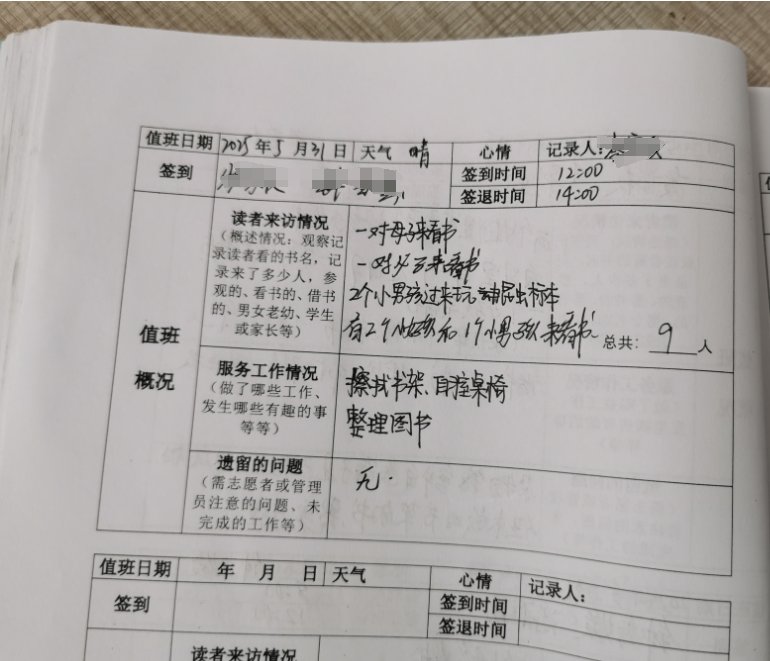 值班日期 2025年5月31日 天气 晴 心情 记录人：
签到 签到时间 12:00
签退时间 14:00
值班
概况
读者来访情况
（概述情况：观察记
录读者看的书名，记
录来了多少人，参
观的、看书的、借书
的、男女老幼、学生
或家长等）
一对母子来看书
一对父子来看书
2个小男孩过来玩 昆虫标本
有2个小女孩和1个小男孩来看书 总共：9人
服务工作情况
（做了哪些工作、
发生哪些有趣的事
等等）
擦拭书架、自控桌椅
整理图书
遗留的问题
（需志愿者或管理
员注意的问题、未
完成的工作等）
无.
值班日期 年 月 日 天气 心情 记录人：
签到 签到时间
签退时间
读者来访情况